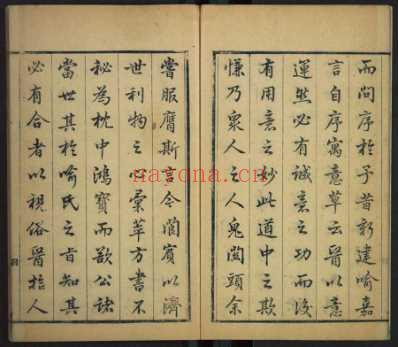 而問序於予昔新建喻嘉
言自序寓意草云醫以意
運然必有誠意之功而後
有用意之妙此道中之欺
慊乃衆人之人鬼関頭余
嘗服膺斯言今閬賓以濟
世利物之心彙萃方書不
秘為枕中鴻寶而欲公諸
當世其於喻氏之旨知其
必有合者以視俗醫指人
nayona.cn